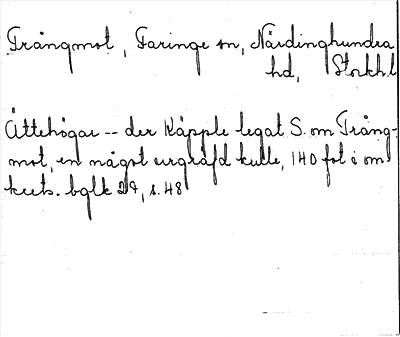 Trångmot, Faringe sn, Närdinghundra
hd, Stockh.l
Ättehögar -- der Käpple legat S. om Trång-
mot, en något urgräfd kulle, 140 fot i om
krets. bglk 29, s. 48